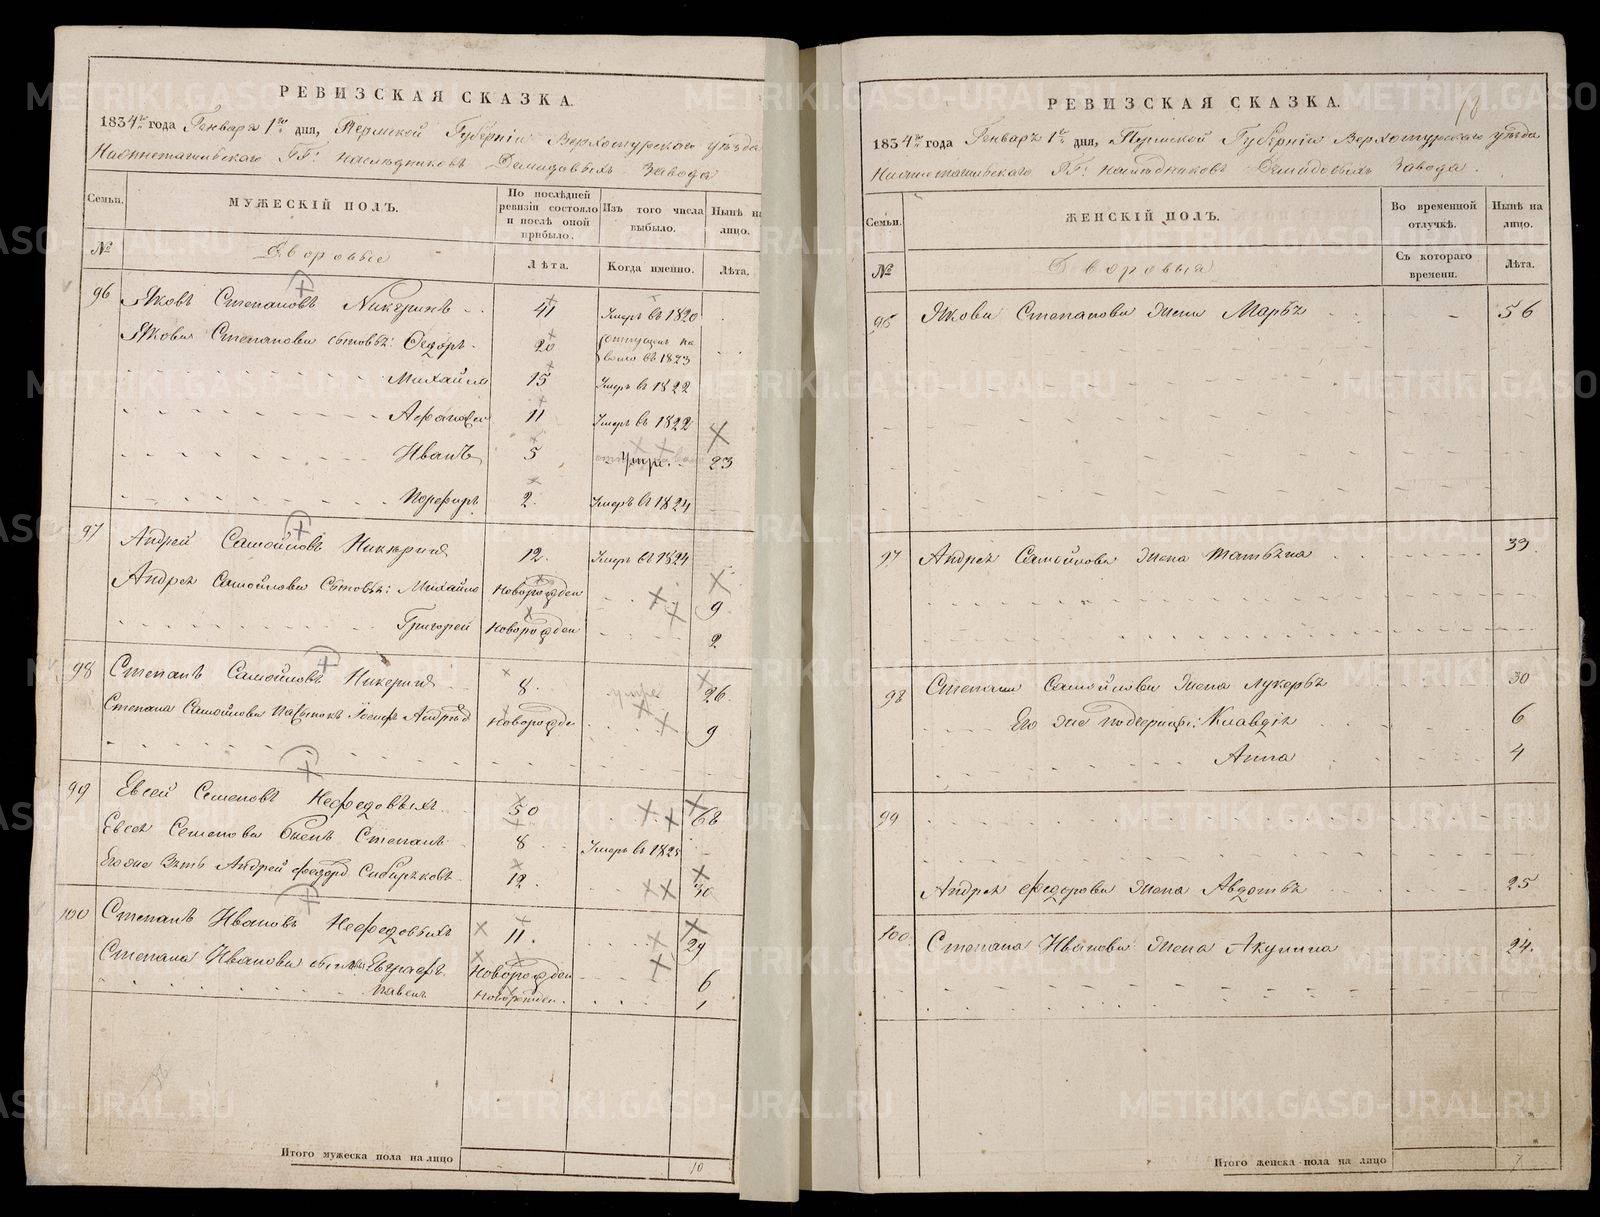 РЕВИЗСКАЯ СКАЗКА.
1834го года Генваря 1го дня, Пермской Губернiи Верхотурскаго уѣзда
Нижнетагильскаго ГГ: наслѣдниковъ Демидовыхъ Завода
Семьи. МУЖЕСКIЙ ПОЛЪ. По послѣдней ревизiи состояло и послѣ оной прибыло. Изъ того числа выбыло. Нынѣ на лицо.
№ Дворовые Лѣта. Когда именно. Лѣта.
96 Яковъ Степановъ 41 Умеръ въ 1820
Якова Степанова сыновья: Федоръ 20 отпущенъ на волю въ 1823
Михайло 15 Умеръ въ 1822
11 Умеръ въ 1822
Иванъ 5 23
Порфиръ 2. Умеръ въ 1824
97 Андрей Самойловъ Никеринъ 12. Умеръ въ 1824
Андрея Самойлова сыновья: Михайло Новорожден 9
Григорей Новорожден 2
98 Степанъ Самойловъ Никеринъ 8. 26
Степана Самойлова пасынокъ Иосифъ Андреевъ Новорожден 9
99 Евсей Семеновъ Нефедовыхъ 50
Евсея Семенова сынъ Степанъ 8 Умеръ въ 1825
Его же зять Андрей Федоровъ Сибиряковъ 12. 30
100 Степанъ Ивановъ Нефедовыхъ 11. 29
Степана Иванова сыновья Евграфъ Новорожден 6
Павелъ Новорожден. 1
Итого мужеска пола на лицо 10
РЕВИЗСКАЯ СКАЗКА.
1834го года Генваря 1го дня, Пермской Губернiи Верхотурскаго уѣзда
Нижнетагильскаго ГГ: наслѣдниковъ Демидовыхъ Завода.
Семьи. ЖЕНСКIЙ ПОЛЪ. Во временной отлучкѣ. Нынѣ на лицо.
№ Дворовыя Съ котораго времени. Лѣта.
96 Якова Степанова жена Марья 56
97 Андрея Самойлова жена Татьяна 39.
98 Степана Самойлова жена Лукерья 30
Его же падчерицы: Клавдiя 6
Анна 4
99
Андрея Федорова жена Авдотья 25
100. Степана Иванова жена Акулина 24.
Итого женска пола на лицо 7
METRIKI.GASO-URAL.RU